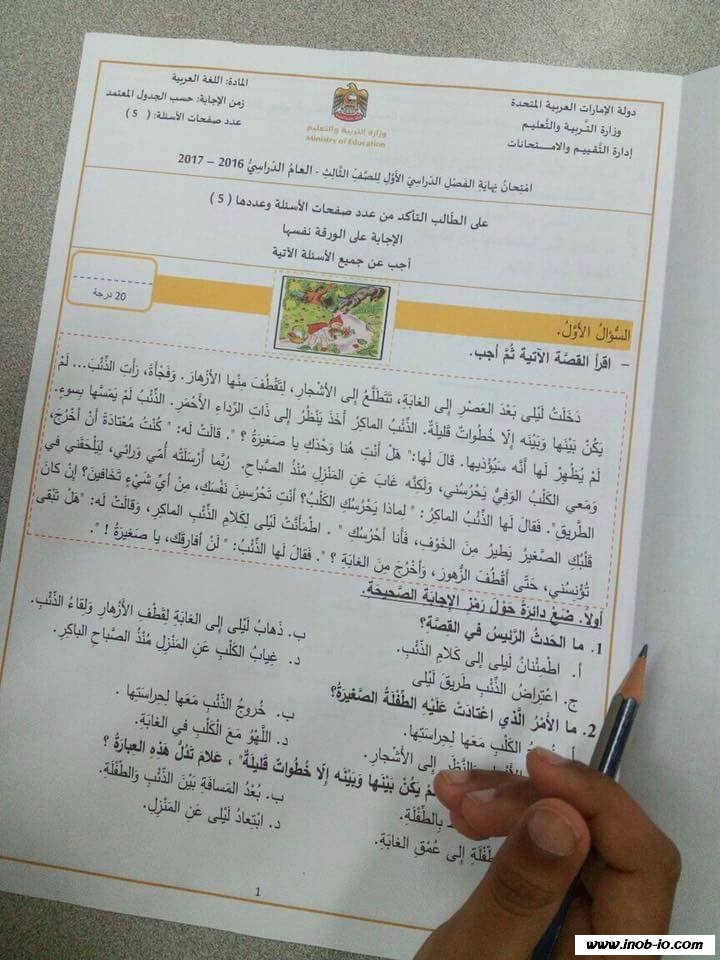 دولة الإمارات العربية المتحدة
وزارة التّربية والتّعليم
إدارة التّقييم والامتحانات
وزارة التربية والتعليم
Ministry of Education
المادة: اللغة العربية
زمن الإجابة: حسب الجدول المعتمد
عدد صفحات الأسئلة: ( 5 )
امتحانُ نهايَةِ الفَصْلِ الدّراسِيّ الأوّلِ لِلصّفّ الثّالثِ - العامُ الدّراسِيُّ 2016 – 2017
على الطّالب التأكد من عدد صفحات الأسئلة وعددها ( 5 )
الإجابة على الورقة نفسها
أجب عن جميع الأسئلة الآتية
20 درجة
السّؤالُ الأوّلُ.
– اقرأ القصّة الآتية ثُمَّ أجب.
دَخَلَتْ لَيْلى بَعْدَ العَصْرِ إلى الغابَةِ، تَتَطَلَّعُ إلى الأَشْجارِ، لِتَقْطُفَ مِنْها الأَزْهارَ. وَفَجْأَةً، رَأَتِ الذِّئْبَ... لَمْ
يَكُنْ بَيْنَها وَبَيْنَه إلّا خُطُواتٌ قَليلَةٌ. الذّئبُ الماكِرُ أَخَذَ يَنْظُرُ إلى ذاتِ الرِّداءِ الأَحْمَرِ. الذّئبُ لَمْ يَمَسَّها بِسوءٍ،
لَمْ يُظْهِرْ لَها أَنَّه سَيُؤْذيها. قالَ لَها:" هَلْ أَنْتِ هُنا وَحْدَكِ يا صَغيرَةُ ؟ ". قالَتْ لَه: " كُنْتُ مُعْتادَةً أَنْ أَخْرُجَ،
وَمَعي الكَلْبُ الوَفِيُّ يَحْرُسُني، وَلكِنَّه غابَ عَنِ المَنْزِلِ مُنْذُ الصَّباحِ. رُبَّما أَرْسَلَتْه أُمّي وَرائي، لِيَلْحَقَني في
الطَّريقِ". فَقالَ لَها الذِّئْبُ الماكِرُ: " لِماذا يَحْرُسُكِ الكَلْبُ؟ أَنْتِ تَحْرُسينَ نَفْسَكِ، مِنْ أَيِّ شَيْءٍ تَخافينَ؟ إنْ كانَ
قَلْبُكِ الصَّغيرُ يَطيرُ مِنَ الخَوْفِ، فَأَنا أَحْرُسُكِ ". اطْمَأَنَّتْ لَيْلى لِكَلامِ الذِّئْبِ الماكِرِ، وَقالَتْ لَه: "هَلْ تَبْقى
تُؤْنِسُني، حَتّى أَقْطُفَ الزُّهورَ، وَأَخْرُجَ مِنَ الغابَةِ ؟ ". فَقالَ لَها الذِّئْبُ: " لَنْ أُفارِقَكِ، يا صَغيرَةُ ! ".
أولا. ضَعْ دائِرَةً حَوْلَ رَمْزِ الإجابَةِ الصَّحيحَةِ.
1. ما الحَدَثُ الرَّئيسُ في القِصَّةِ؟
أ. اطْمِئْنانُ لَيلى إلى كَلامِ الذّئْبِ.
ب. ذَهابُ لَيْلى إلى الغابَةِ لِقَطْفِ الأَزْهارِ وَلِقاءُ الذّئْبِ.
ج. اعْتِراضُ الذِّئْبِ طَريقَ لَيْلى
د. غِيابُ الكَلْبِ عَنِ المَنْزِلِ مُنْذُ الصَّباحِ الباكِرِ.
2. ما الأَمْرُ الَّذي اعْتادَتْ عَلَيْهِ الطِّفْلَةُ الصَّغيرَةُ؟
أ. الكَلْبِ مَعَها لِحِراسَتِها.
ب. خُروجُ الذّئْبِ مَعَها لِحِراسَتِها .
النَّظَرِ إلى الأَشْجارِ.
د. اللَّهْوُ مَعَ الكَلْبِ في الغابَةِ.
لَمْ يَكُنْ بَيْنَها وَبَيْنَه إلّا خُطُواتٌ قَليلَةٌ" ، عَلامَ تَدُلُّ هذِهِ العِبارَةُ ؟
بِالطِّفْلَةِ.
ب. بُعْدُ المَسافَةِ بَيْنَ الذّئْبِ وَالطِّفْلَةِ.
الطِّفْلَةِ إلى عُمْقِ الغابَةِ.
د. ابْتِعادُ لَيْلى عَنِ المَنْزِلِ.
1
www.inob-io.com